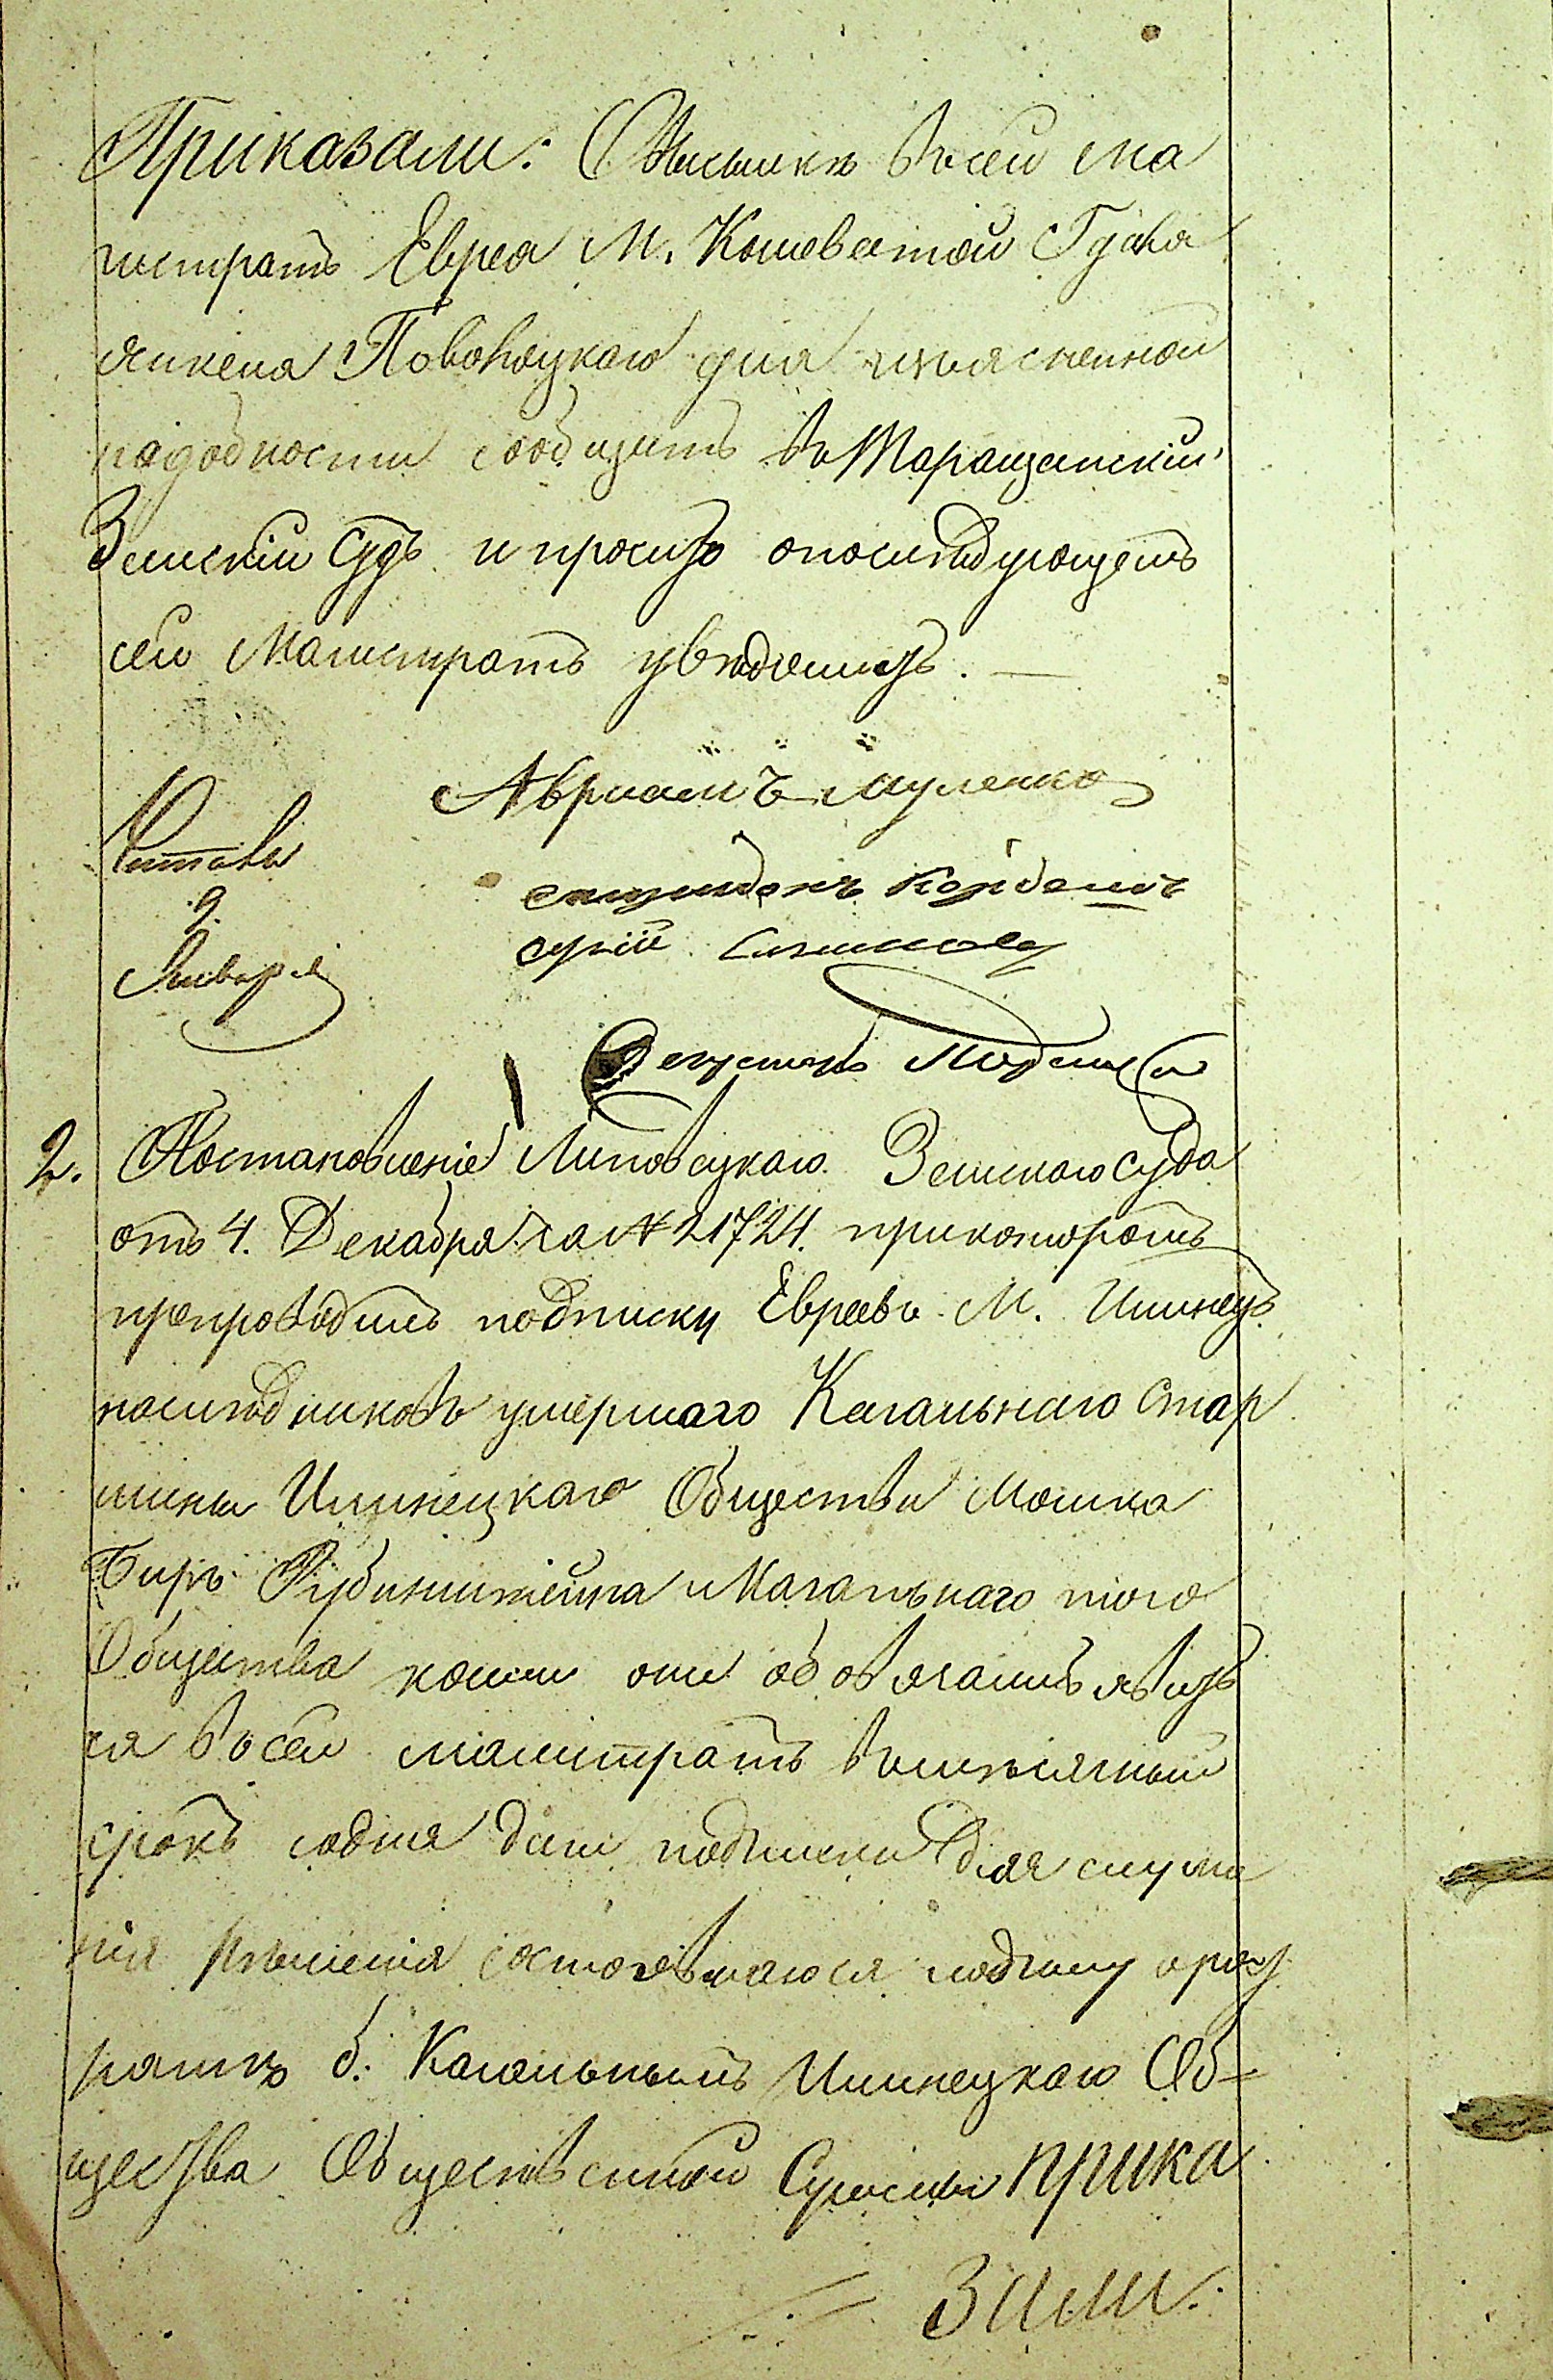 Приказали: О высылке въ сей ма
гистратъ Еврея М. Кошеватой
Поволоцкаго для изъясненной
надобности сообщить въ Таращанскій
Земскій Судъ и просить о послѣдующемъ
сей Магистратъ увѣдомить. —
Читалъ
9.
Января
2. Постановленіе Липовецкаго Земскаго Суда
отъ 4. Декабря за № 21724. при которомъ
препроводилъ подписку Евреевъ М. Илинецъ
наслѣдниковъ умершаго Кагальнаго Стар
шины Илинецкаго Общества Мошка
Рубинштейна и Кагальнаго того
Общества коими они обовязались явить
ся въ сей магистратъ въ мѣсячный
срокъ со дня дачи подписки для слуша
нія рѣшенія состоявшагося по дѣлу о раст
ратѣ б. Кагальнымъ Илинецкаго Об=
щества Общественной Суммы Прика
зали: